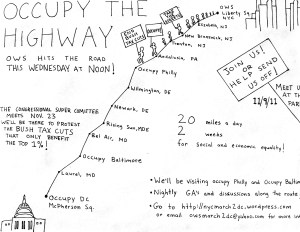 OCCUPY THE
HIGHWAY
OWS HITS THE ROAD
THIS WEDNESDAY AT NOON!
OWS
Liberty Sq.
NYC
Elizabeth, NJ
New Brunswick, NJ
Trenton, NJ
Occupy Philly
Wilmington, DE
Newark, DE
Rising Sun, MD
Bel Air, MD
Occupy Baltimore
Laurel, MD
Occupy DC
McPherson Sq.
END
BUSH
TAX CUTS
OCCUPY
JOIN US!
OR
HELP SEND
US OFF!
MEET U
AT TH
PAR
11/9/11
THE CONGRESSIONAL SUPER COMMITTEE
MEETS NOV 23
WE'LL BE THERE TO PROTEST
THE BUSH TAX CUTS
THAT ONLY BENEFIT
THE TOP 1%!
20 miles a day
2 weeks
for social and economic equality!
• We'll be visiting Occupy Philly and Occupy Baltim
• Nightly GA's and discussions along the route.
• Go to http://nycmarch2dc.wordpress.com
or email owsmarch2dc@yahoo.com for more in